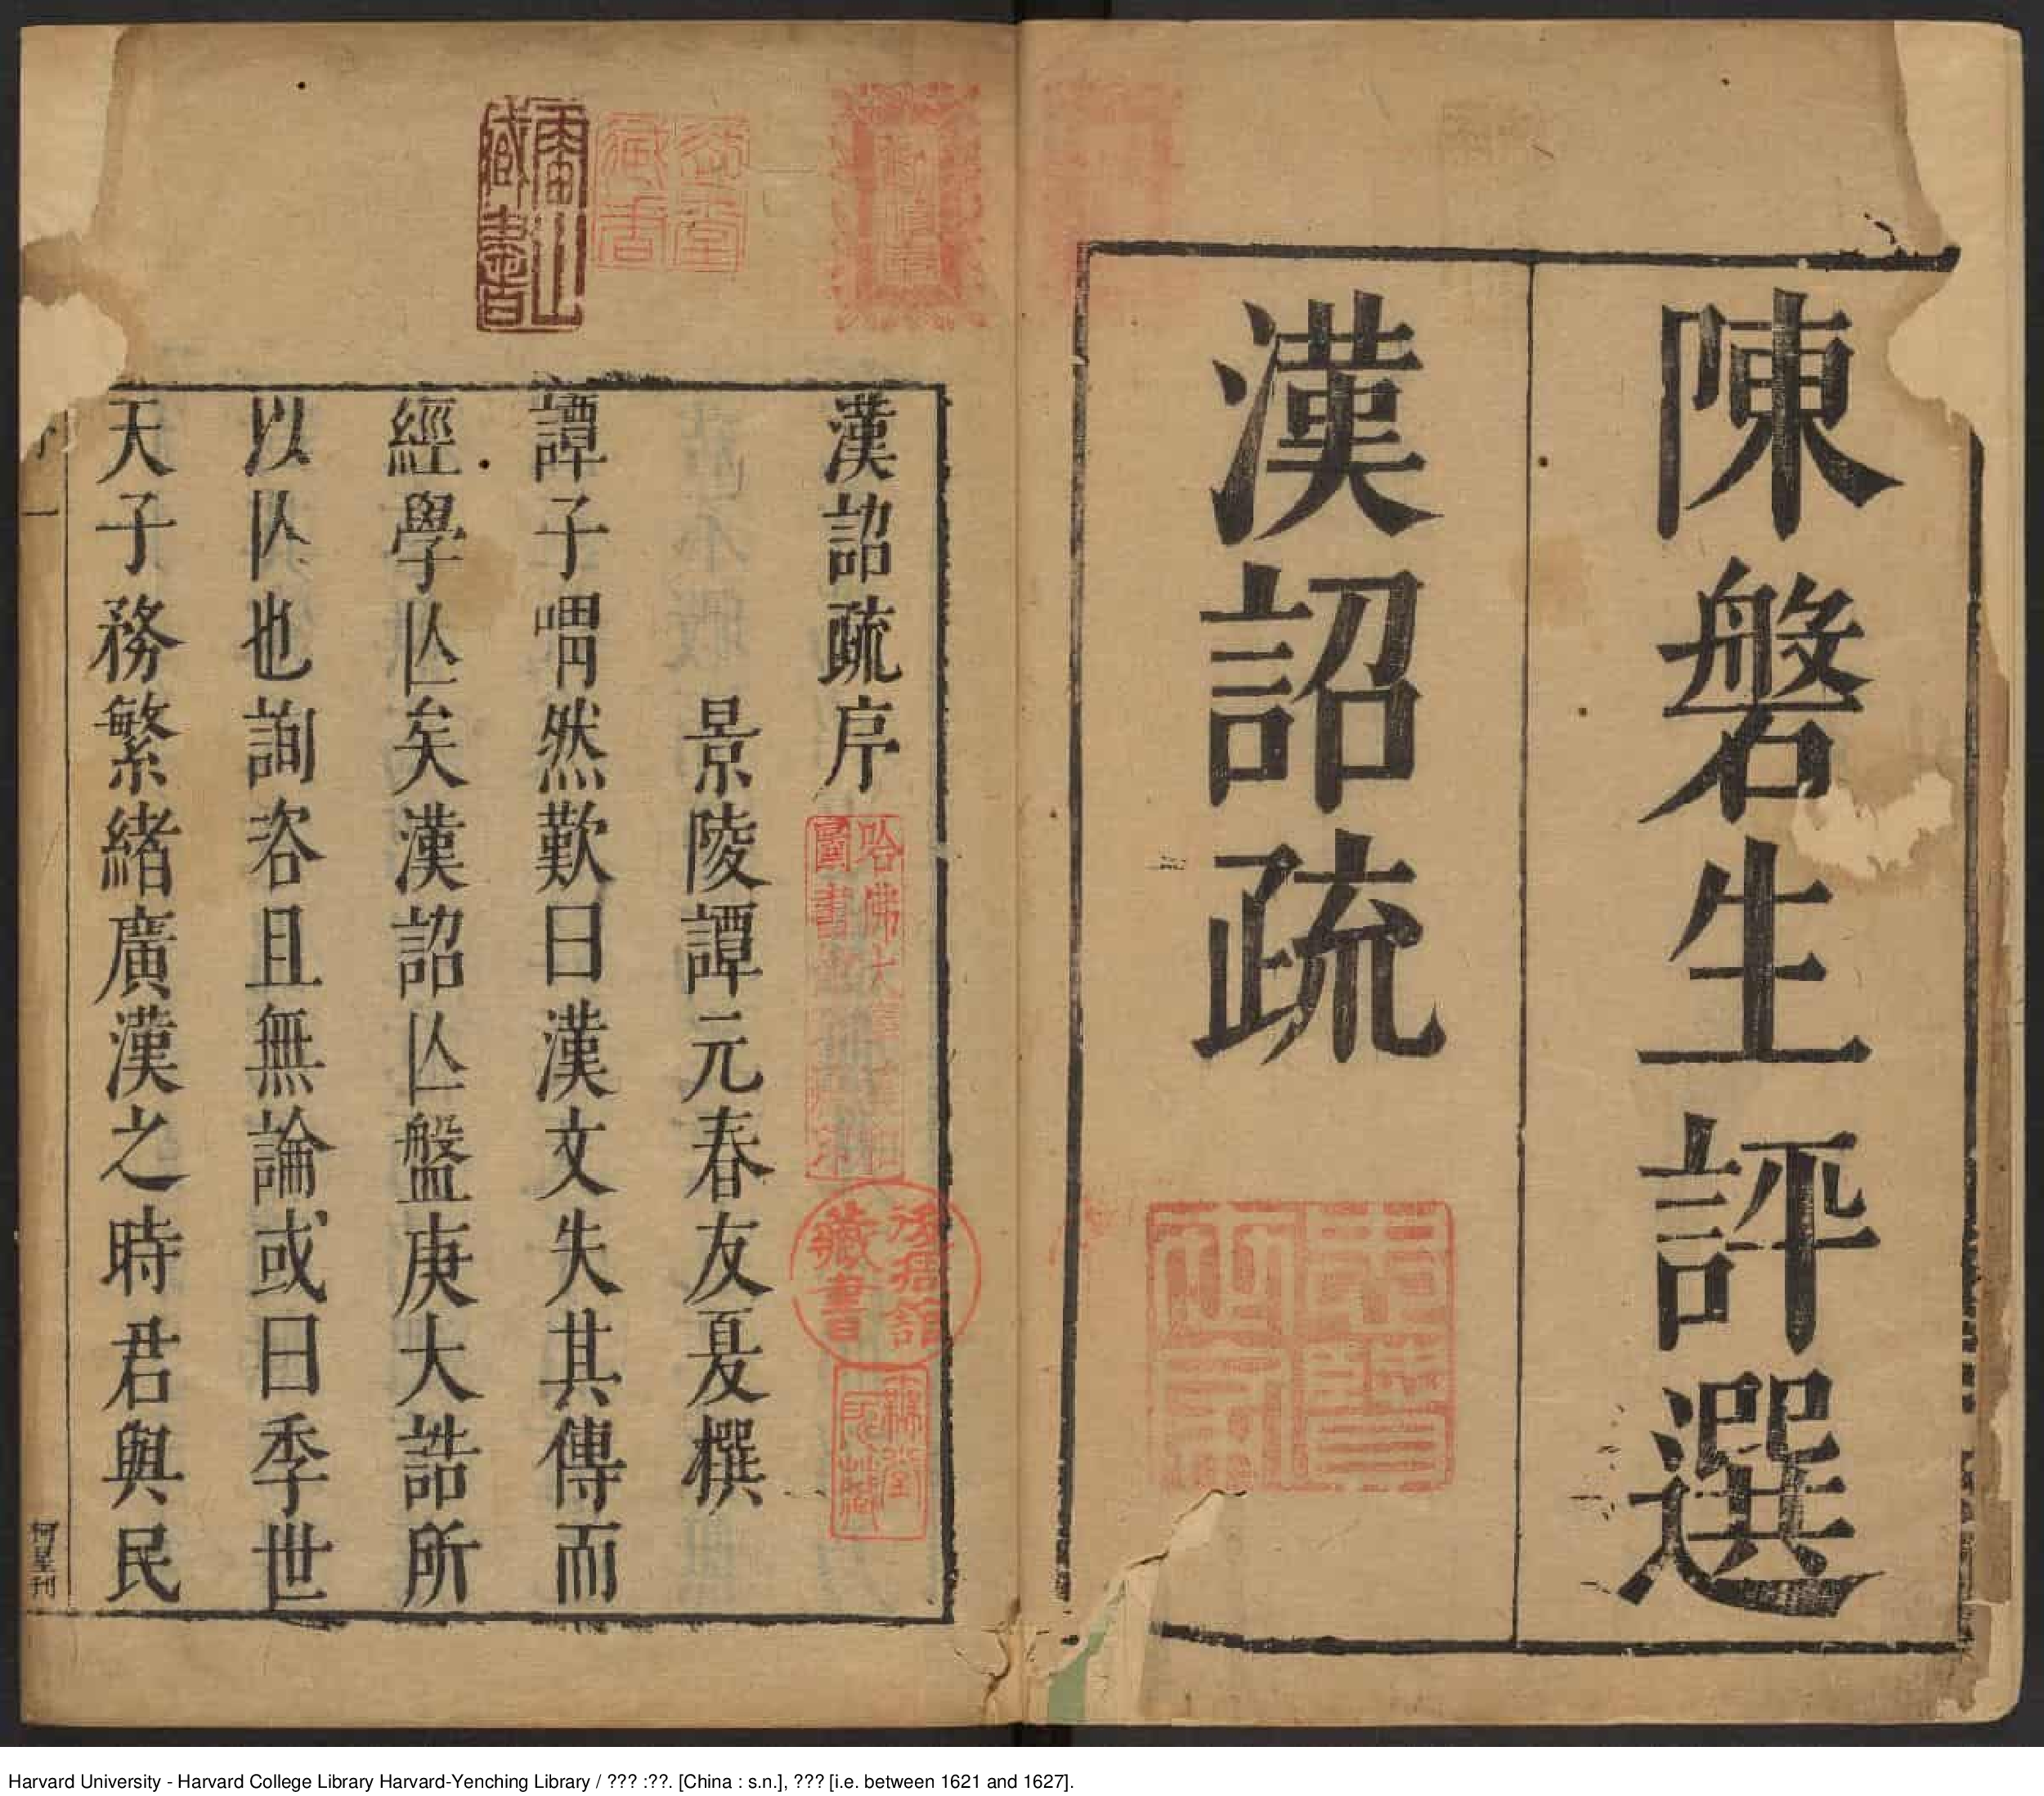 陳磐生評選
漢詔疏
漢詔疏序
景陵譚元春友夏撰
譚子喟然歎曰漢文失其傳而
經學亾矣漢詔亾盤庚大誥所
以亾也詢咨且無論或曰季世
天子務繁緒廣漢之時君與民
一
哈佛大學漢和
圖書館
藏書
Harvard University - Harvard College Library Harvard-Yenching Library / ??? :??. [China : s.n.], ??? [i.e. between 1621 and 1627].